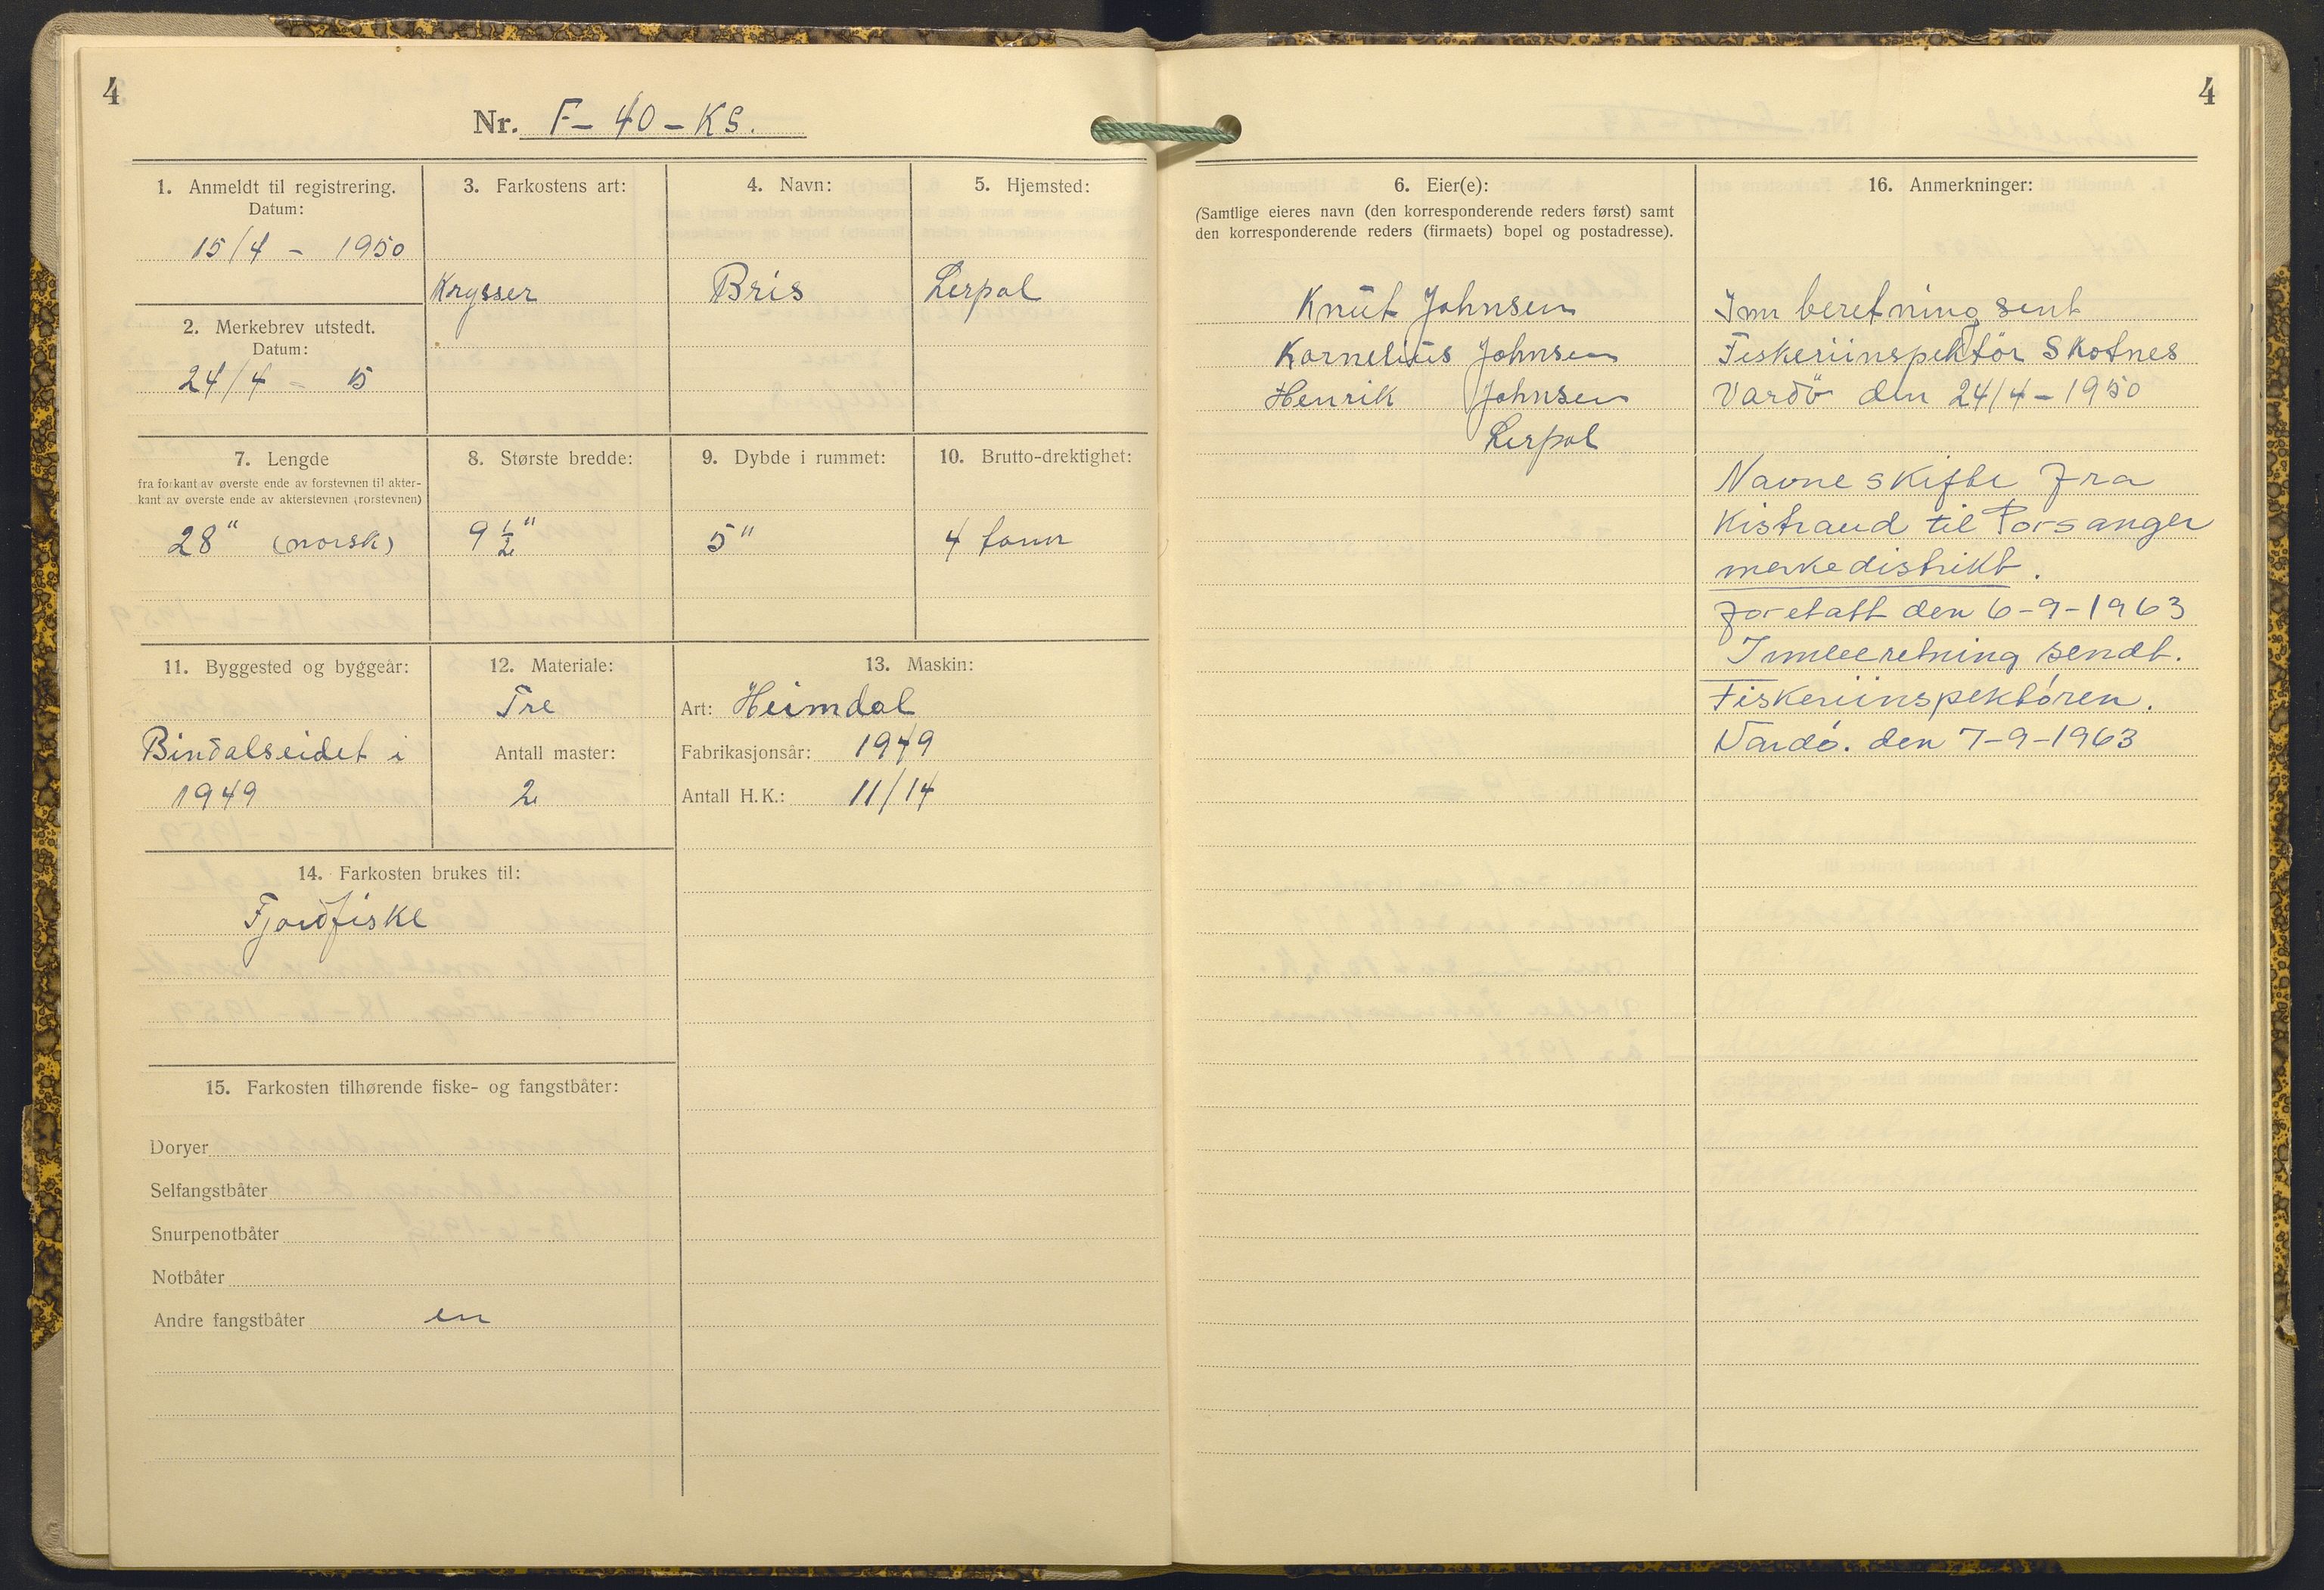 4
Nr. F-40-KS.
1. Anmeldt til registrering.
Datum:
15/4 - 1950
2. Merkebrev utstedt.
Datum:
24/4 - 15
3. Farkostens art:
Krysser
4. Navn:
Bris
5. Hjemsted:
Lerpol
7. Lengde
fra forkant av øverste ende av forstevnen til akter-
kant av øverste ende av akterstevnen (rorstevnen)
28" (norsk)
8. Største bredde:
9 1/2"
9. Dybde i rummet:
5"
10. Brutto-drektighet:
4 tonn
11. Byggested og byggeår:
Bindalseidet i
1949
12. Materiale:
Tre
Antall master:
2
13. Maskin:
Art: Heimdal
Fabrikasjonsår: 1949
Antall H.K.: 11/14
14. Farkosten brukes til:
Fjordfiske
15. Farkosten tilhørende fiske- og fangstbåter:
Doryer
Selfangstbåter
Snurpenotbåter
Notbåter
Andre fangstbåter en
4
6. Eier(e):
(Samtlige eieres navn (den korresponderende reders først) samt
den korresponderende reders (firmaets) bopel og postadresse).
Knut Johnsen
Kornelius Johnsen
Henrik Johnsen
Lerpol
16. Anmerkninger:
Inn beretning sent
Feskeriinspektör Skotnes
Vardö den 24/4-1950
Navne skifte fra
Kistrand til Porsanger
merkedistrikt.
foretatt den 6-9-1963
Innberetning sendt.
Fiskeriinspektóren.
Vardó. den 7-9-1963